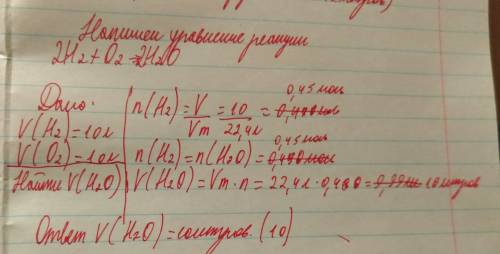 Напишем уравнение реакции
2H2+O2=2H2O
Дано:
V(H2)=10л
V(O2)=10л
Найти V(H2O)
0,45 моль
n(H2)=V/Vm=10/22,4л=
0,45 моль
n(H2)=n(H2O)=
V(H2O)=Vm·n=22,4л·0,4 = 10 литров
Ответ V(H2O)= литров (10)